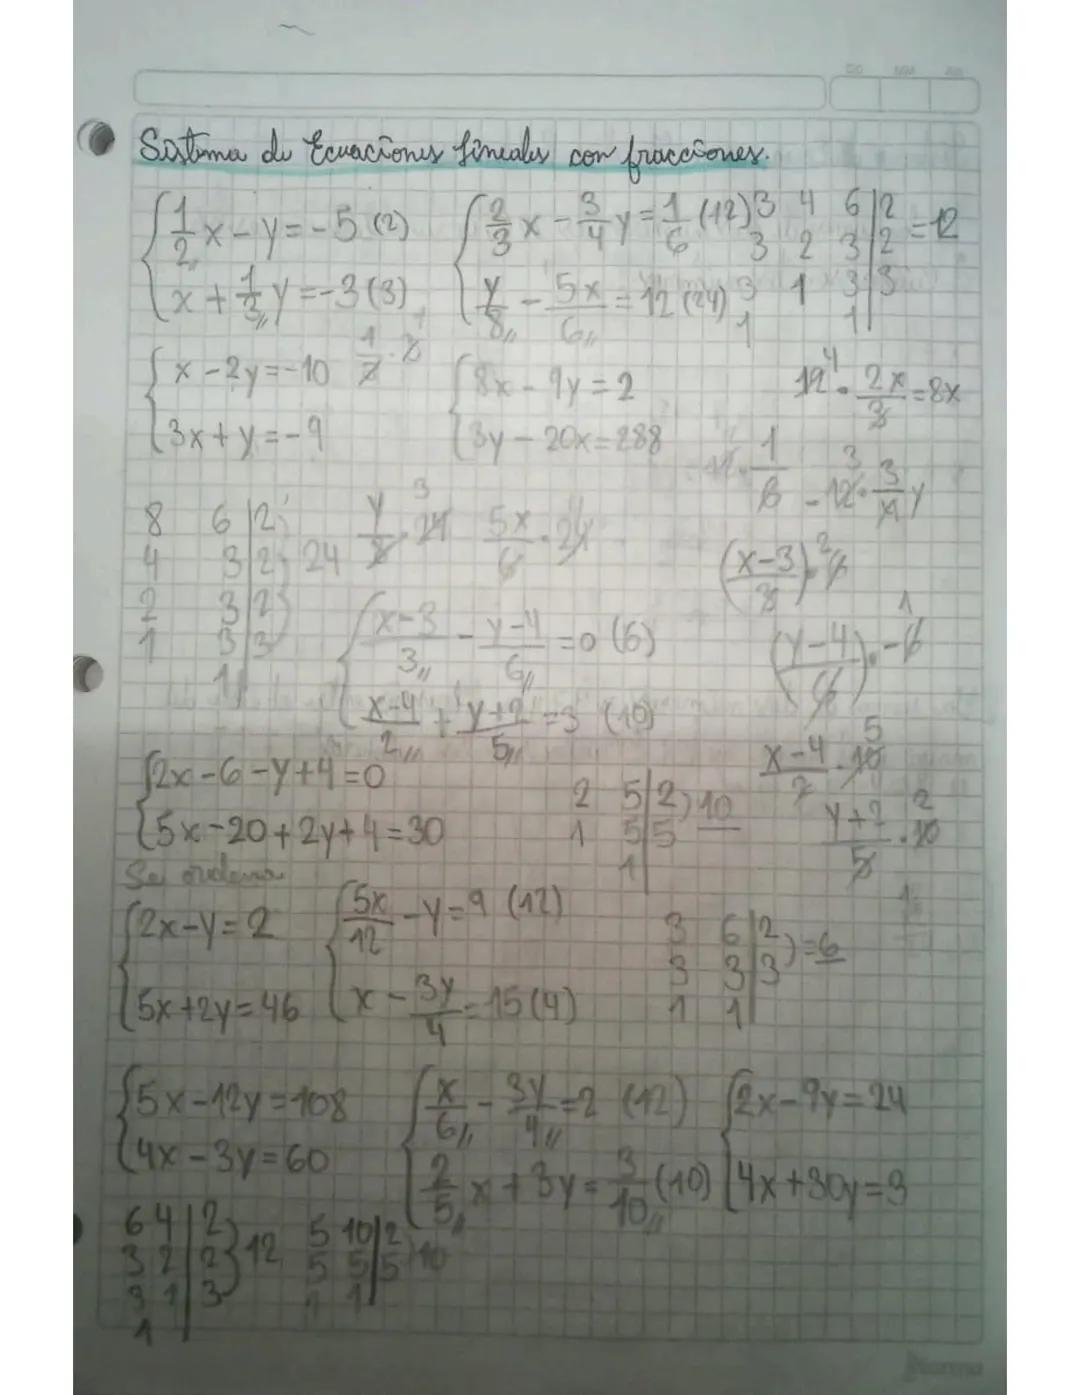 Sistema de Ecuaciones lineales con fracciones.
1/2 x - y = -5 (2)
x + 1/3 y = -3 (3)
2/3 x - 3/4 y = 1/6 (12)
y/8 - 5x/6 = 12 (24)
3 4 6 | 2 = 12
3 2 3 | 2
3 1 3 | 3
1 1 |
x - 2y = -10
3x + y = -9
1/2 · 2 1
8x - 9y = 2
3y - 20x = 288
12 4 · 2x/3 = 8x
1/6
- 12 3 · 3/4 y
8 6 | 2
4 3 | 2 24
2 3 | 2
1 3 | 3
1 |
y/8 · 24 3
5x/6 · 24
(x-3/3) · 6 2
(y-4/6) · -6 1
x-3/3 - y-4/6 = 0 (6)
x-4/2 + y+2/5 = 3 (10)
x-4/2 · 10 5
y+2/5 · 10 2
2x - 6 - y + 4 = 0
5x - 20 + 2y + 4 = 30
2 5 | 2 10
1 5 | 5
1 |
Se ordena
2x - y = 2
5x + 2y = 46
5x/12 - y = 9 (12)
x - 3y/4 = 15 (4)
3 6 | 2 = 6
3 3 | 3
1 1 |
5x - 12y = 108
4x - 3y = 60
x/6 - 3y/4 = 2 (12)
2/5 x + 3y = 3/10 (10)
2x - 9y = 24
4x + 30y = 3
6 4 | 2 12
3 2 | 2
3 1 | 3
1 |
5 10 | 2 10
5 5 | 5
1 1 |
Norma